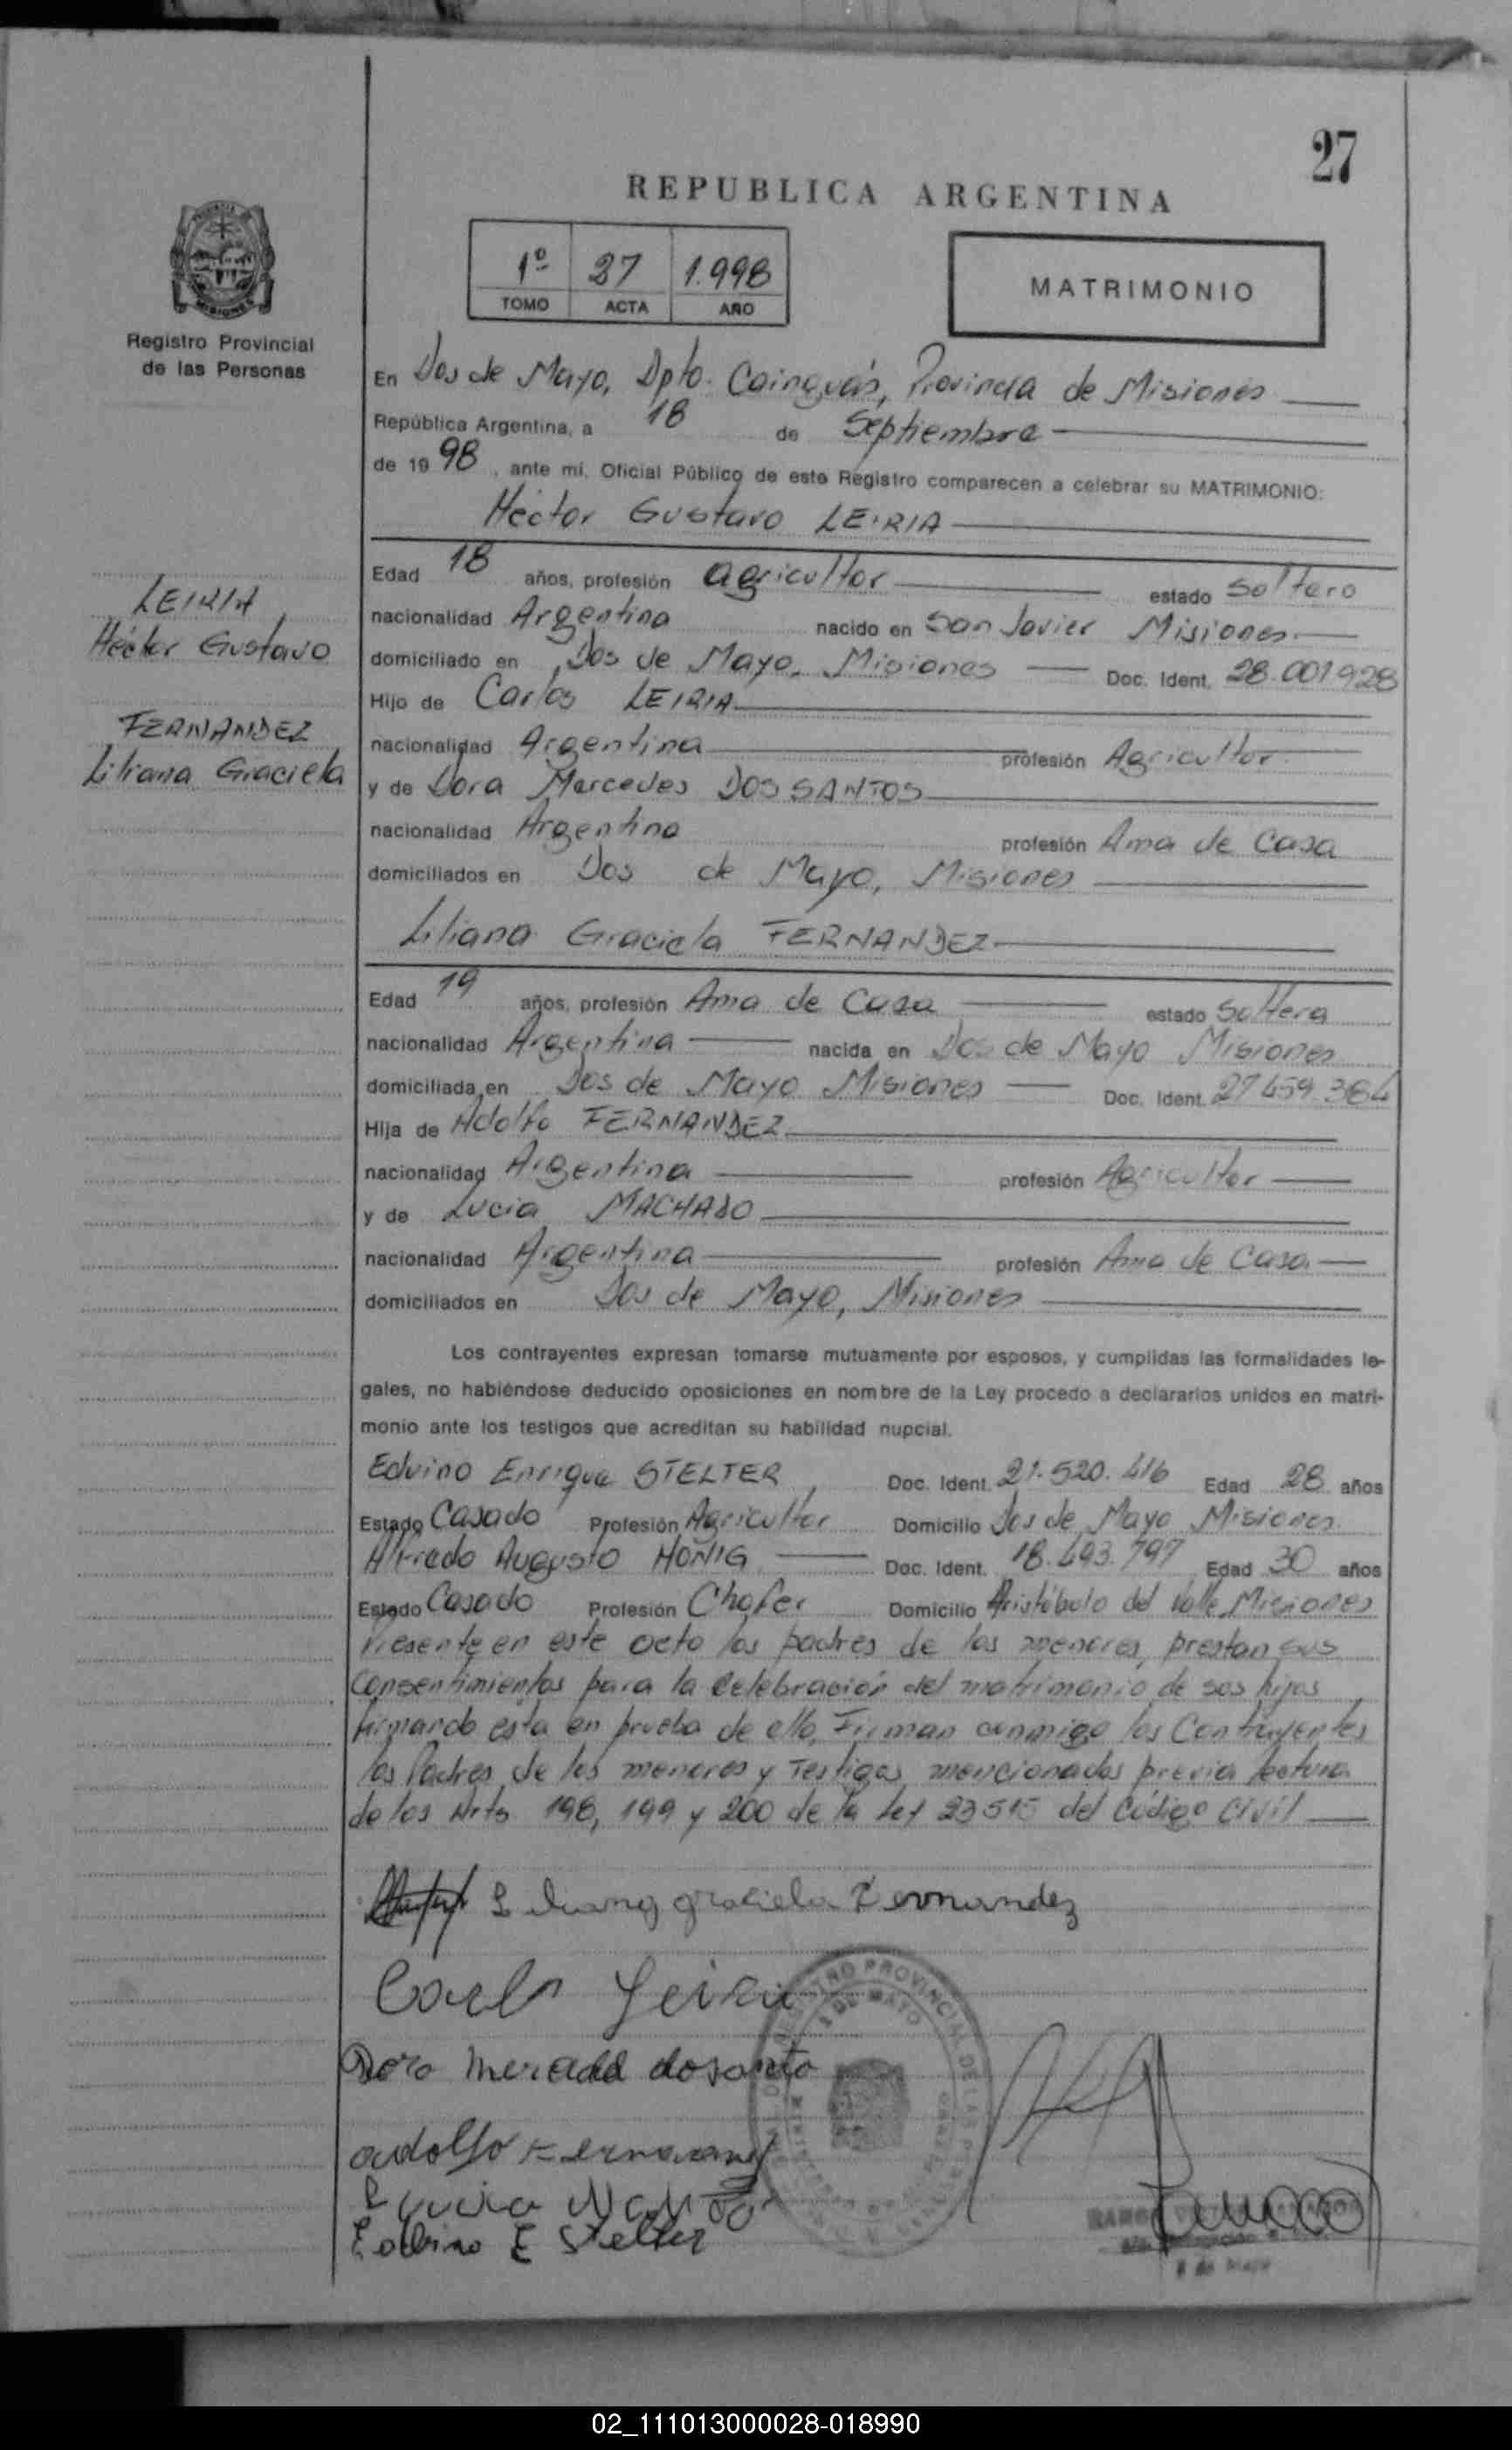 27
REPUBLICA ARGENTINA
1º 27 1.998
TOMO ACTA AÑO
MATRIMONIO
MISIONES
Registro Provincial
de las Personas
En Dos de Mayo, Dpto. Cainguás, Provincia de Misiones
República Argentina, a 18 de Septiembre
de 19 98, ante mí, Oficial Público de este Registro comparecen a celebrar su MATRIMONIO:
Héctor Gustavo LEIRIA
Edad 18 años, profesión agricultor estado soltero
LEIRIA
Héctor Gustavo
nacionalidad Argentina nacido en San Javier Misiones
domiciliado en Dos de Mayo, Misiones Doc. Ident. 28.001.928
Hijo de Carlos LEIRIA
FERNANDEZ
Liliana Graciela
nacionalidad Argentina profesión Agricultor
y de Dora Mercedes DOS SANTOS
nacionalidad Argentina profesión Ama de Casa
domiciliados en Dos de Mayo, Misiones
Liliana Graciela FERNANDEZ
Edad 19 años, profesión Ama de Casa estado Soltera
nacionalidad Argentina nacida en Dos de Mayo Misiones
domiciliada en Dos de Mayo Misiones Doc. Ident. 27 459 364
Hija de Adolfo FERNANDEZ
nacionalidad Argentina profesión Agricultor
y de Lucia MACHADO
nacionalidad Argentina profesión Ama de Casa
domiciliados en Dos de Mayo, Misiones
Los contrayentes expresan tomarse mutuamente por esposos, y cumplidas las formalidades le-
gales, no habiéndose deducido oposiciones en nombre de la Ley procedo a declararlos unidos en matri-
monio ante los testigos que acreditan su habilidad nupcial.
Edvino Enrique STELTER Doc. Ident. 21.520.416 Edad 28 años
Estado Casado Profesión Agricultor Domicilio Dos de Mayo Misiones
Alfredo Augusto HONIG Doc. Ident. 18.493.797 Edad 30 años
Estado Casado Profesión Chofer Domicilio Aristóbulo del Valle Misiones
Presente en este acto los padres de los menores, prestan sus
Consentimientos para la Celebración del matrimonio de sos hijos
firmando esta en prueba de ello, Firman conmigo los Contrayentes
los Padres de los menores y Testigos mencionados previa lectura
de los Arts. 198, 199 y 200 de la Ley 23515 del Código Civil
Liliana graciela Fernandez
Carlo Leiria
REGISTRO PROVINCIAL DE LAS
2 DE MAYO
Dora Mercede dosanto
adolfo Fernandez
Edvino E Stelter
2 de Mayo
02_111013000028-018990